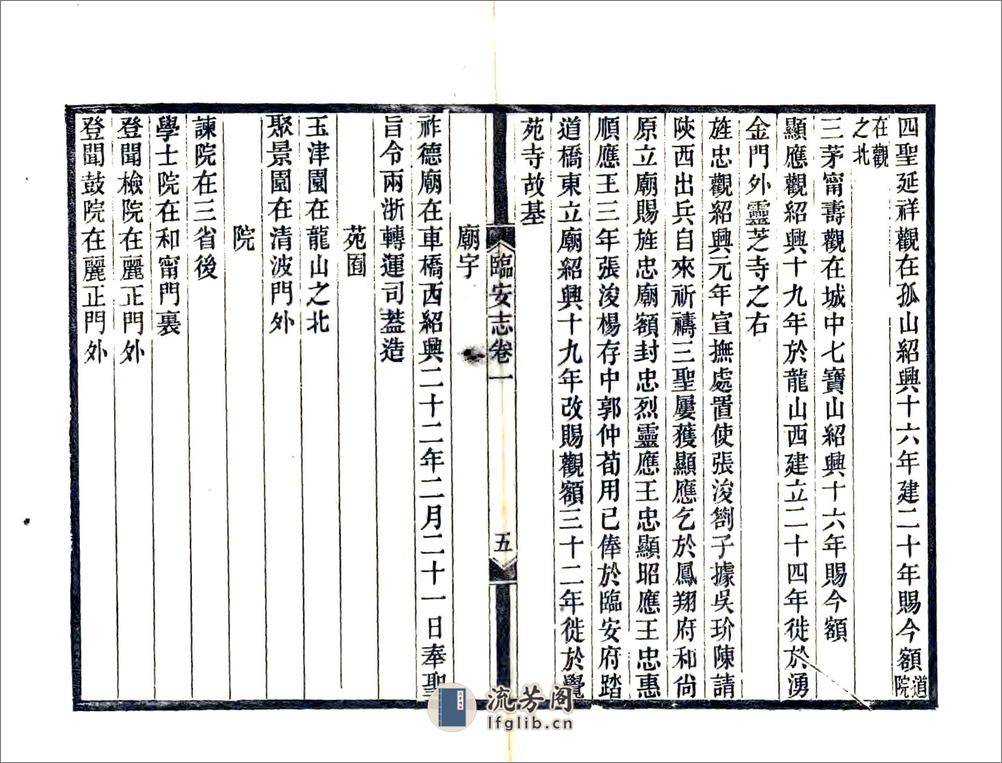 四聖延祥觀在孤山紹興十六年建二十年賜今額道院
在觀之北
三茅甯壽觀在城中七寶山紹興十六年賜今額
顯應觀紹興十九年於龍山西建立二十四年徙於湧
金門外靈芝寺之右
旌忠觀紹興元年宣撫處置使張浚劄子據吳玠陳請
陝西出兵自來祈禱三聖屢獲顯應乞於鳳翔府和尚
原立廟賜旌忠廟額封忠烈靈應王忠顯昭應王忠惠
順應王三年張浚楊存中郭仲荀用已俸於臨安府踏
道橋東立廟紹興十九年改賜觀額三十二年徙於覺
苑寺故基
臨安志卷一
五
廟宇
祚德廟在車橋西紹興二十二年二月二十一日奉聖
旨令兩浙轉運司蓋造
苑囿
玉津園在龍山之北
聚景園在清波門外
院
諫院在三省後
學士院在和甯門裏
登聞檢院在麗正門外
登聞鼓院在麗正門外
流芳阁
lfglib.cn